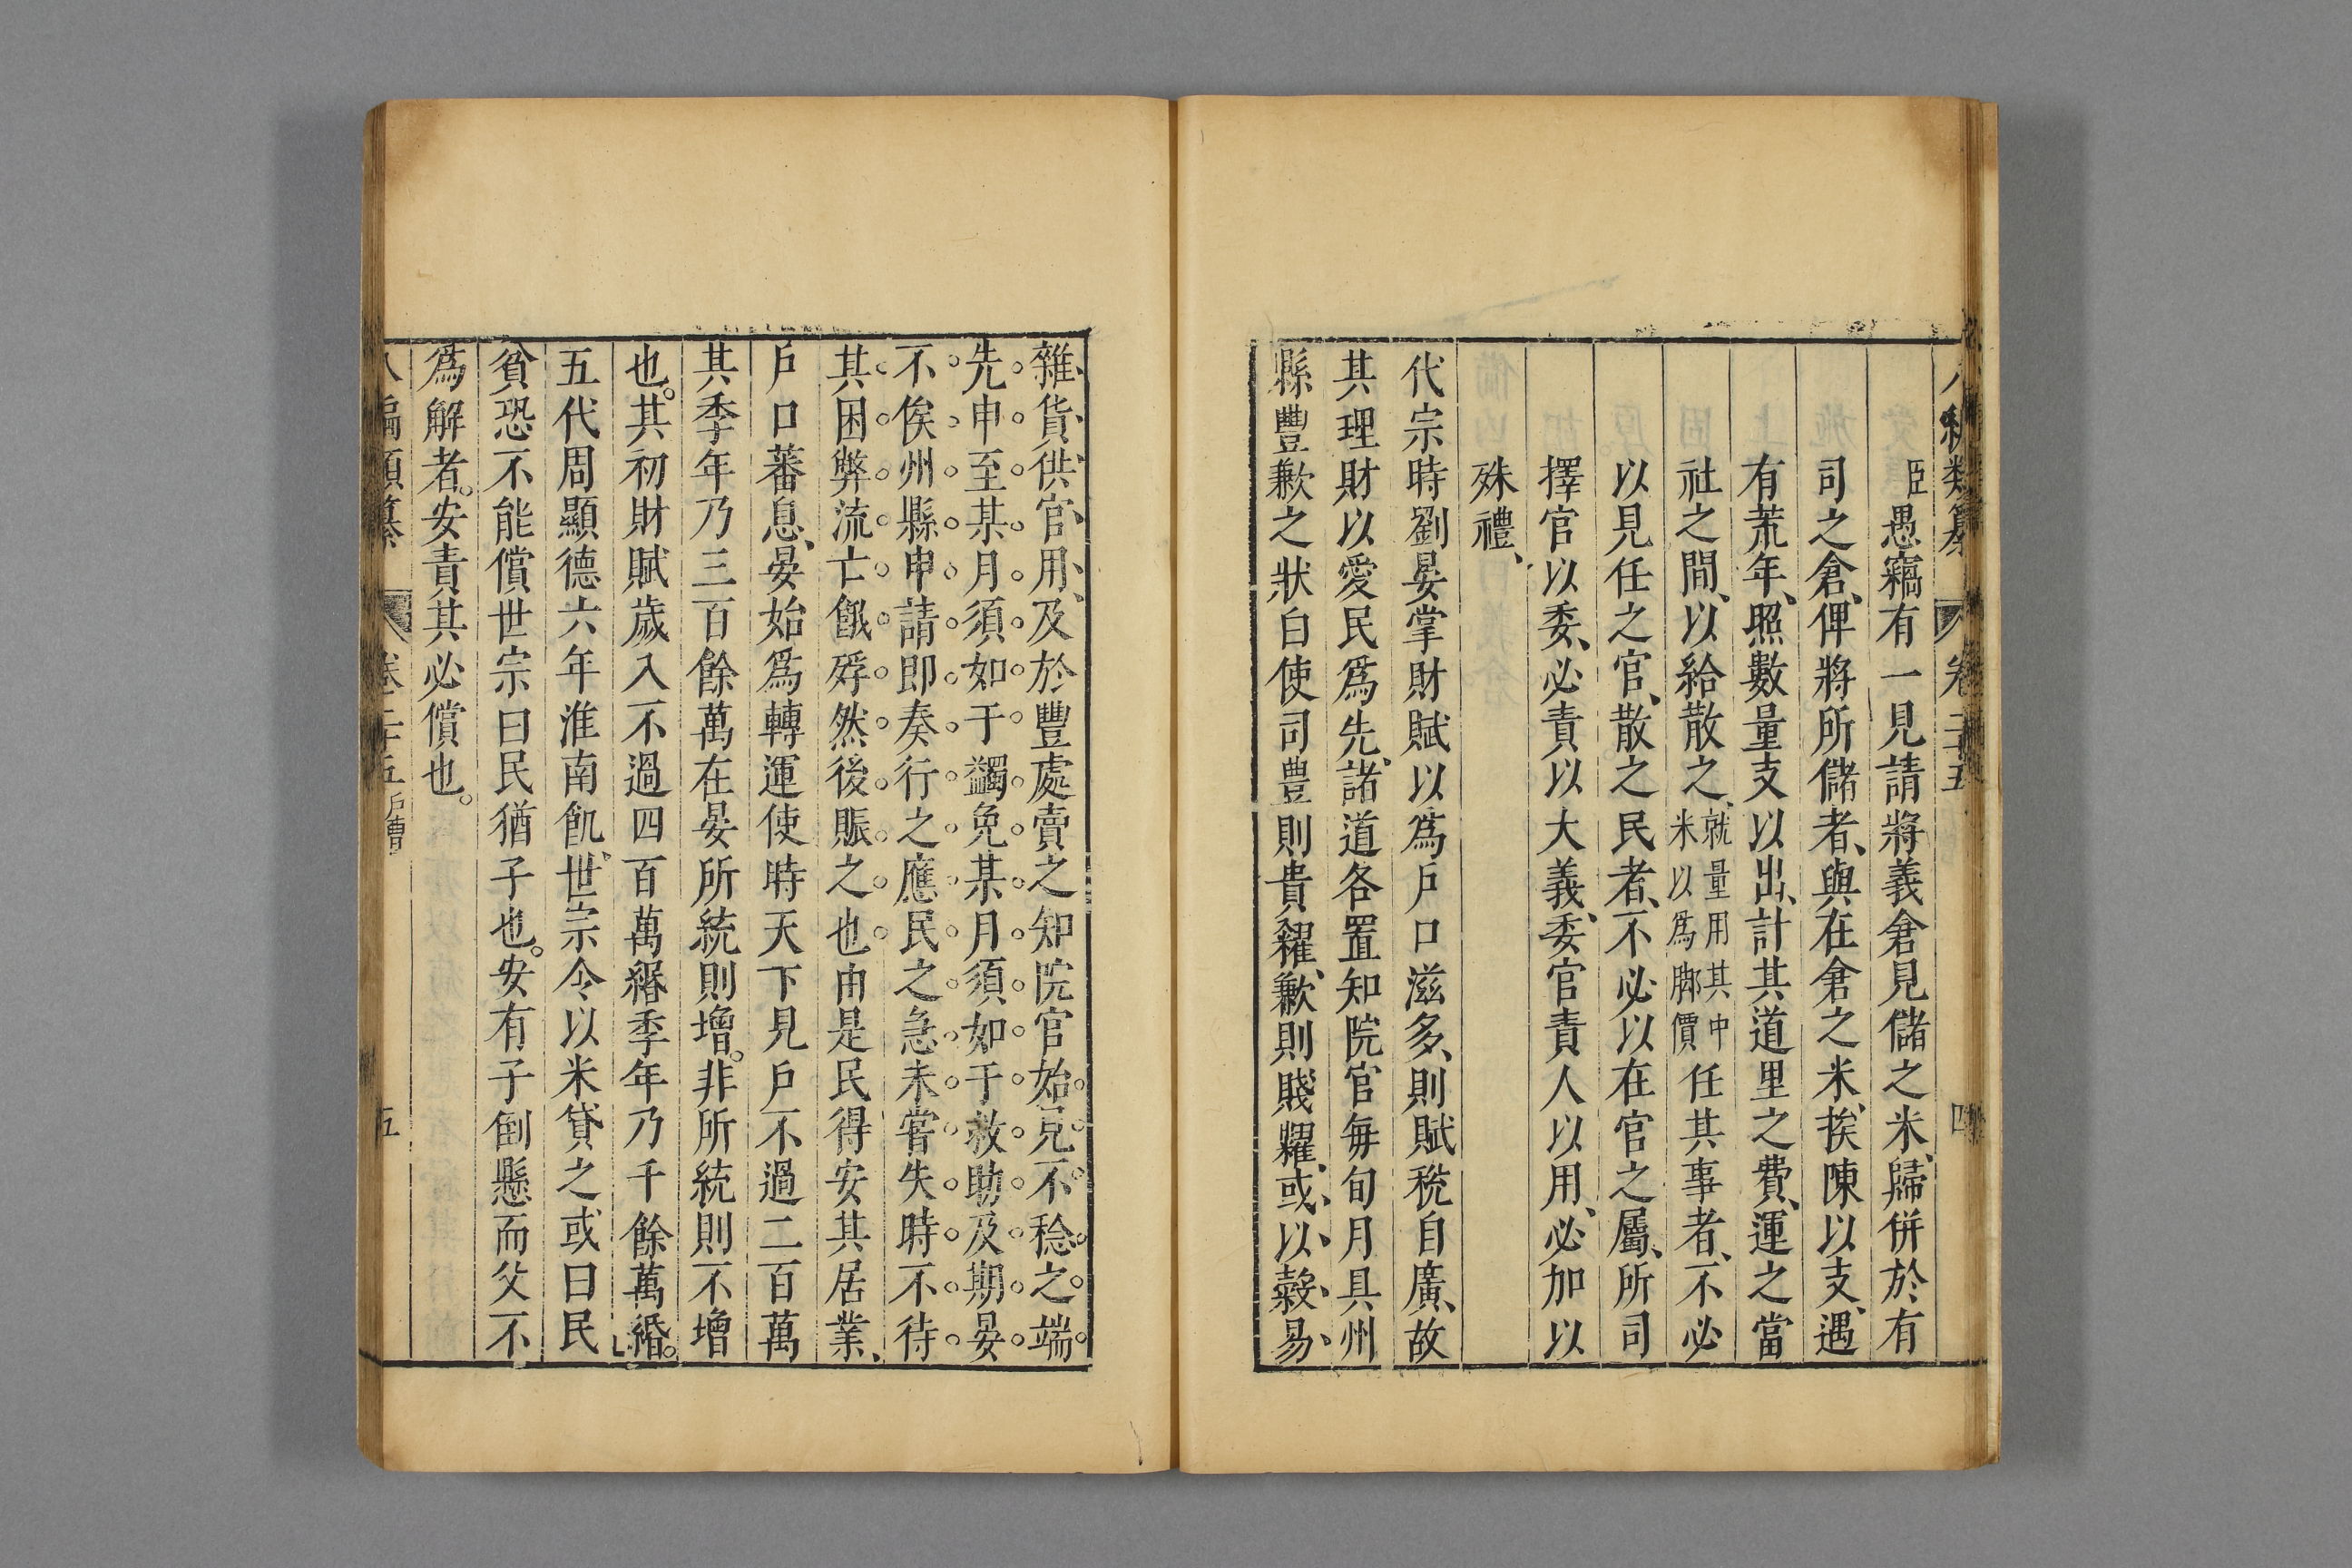 八編類纂 卷二十五 四
臣愚竊有一見請將義倉見儲之米、歸併於有
司之倉、俾將所儲者、與在倉之米、挨陳以支、遇
有荒年、照數量支以出、計其道里之費、運之當
社之間、以給散之、就量用其中米以爲脚價任其事者、不必
以見任之官、散之民者、不必以在官之屬、所司
擇官以委、必責以大義、委官責人以用、必加以
殊禮、
代宗時劉晏掌財賦以爲戶口滋多、則賦稅自廣、故
其理財以愛民爲先、諸道各置知院官毎旬月具州
縣豐歉之狀白使司豊則貴糴、歉則賤糶、或、以、穀、易、
雜、貨、供、官、用、及於豐處賣之知院官始見不稔之端
先申至某月須如干蠲免某月須如干救助及期晏
不俟州縣申請即奏行之應民之急未嘗失時不待
其困弊流亡餓殍然後賑之也由是民得安其居業、
戶口蕃息、晏始爲轉運使時天下見戶不過二百萬
其季年乃三百餘萬在晏所統則增。非所統則不增
也。其初財賦歲入不過四百萬緡季年乃千餘萬緡。
五代周顯德六年淮南飢、世宗令以米貸之或曰民
貧恐不能償世宗曰民猶子也。安有子倒懸而父不
爲解者。安責其必償也。
八編類纂 卷二十五 戶曹 五